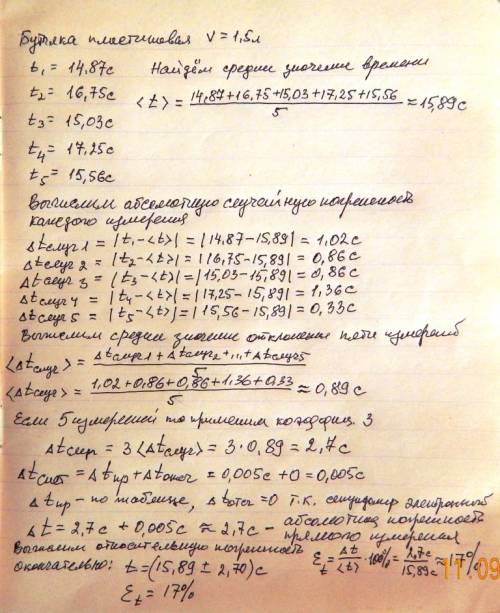 Бутылка пластиковая V = 1,5л
t₁ = 14,87с Найдём среднее значение времени
t₂ = 16,75с <t> = (14,87+16,75+15,03+17,25+15,56)/5 ≈ 15,89с
t₃ = 15,03с
t₄ = 17,25с
t₅ = 15,56с
Вычислим абсолютную случайную погрешность
каждого измерения
Δtслуч1 = |t₁-<t>| = |14,87-15,89| = 1,02с
Δtслуч2 = |t₂-<t>| = |16,75-15,89| = 0,86с
Δtслуч3 = |t₃-<t>| = |15,03-15,89| = 0,86с
Δtслуч4 = |t₄-<t>| = |17,25-15,89| = 1,36с
Δtслуч5 = |t₅-<t>| = |15,56-15,89| = 0,33с
Вычислим среднее значение отклонения пяти измерений
<Δtслуч> = (Δtслуч1 + Δtслуч2 + ... + Δtслуч5)/5
<Δtслуч> = (1,02+0,86+0,86+1,36+0,33)/5 ≈ 0,89с
Если 5 измерений то применим коэффиц. 3
Δtслуч = 3<Δtслуч> = 3·0,89 = 2,7с
Δtсист = Δtпр + Δtотсч = 0,005с + 0 = 0,005с
Δtпр - по таблице, Δtотсч = 0 т.к. секундомер электронный
Δt = 2,7с + 0,005с ≈ 2,7с - абсолютная погрешность прямого измерения
Вычислим относительную погрешность εt = Δt/<t> ·100% = 2,7с/15,89с ≈ 17%
окончательно: t = (15,89 ± 2,70)с
εt = 17%
11.09